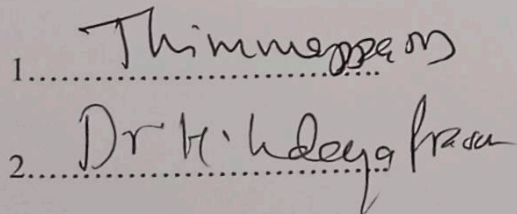 1. Thimmeppa M
2. Dr H. Udaya Prasa